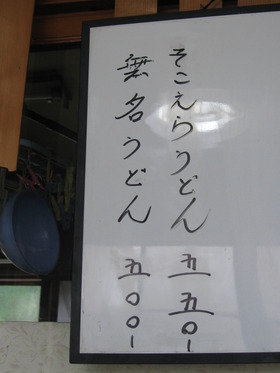 そこえらうどん 五五〇ー
無名うどん 五〇〇ー